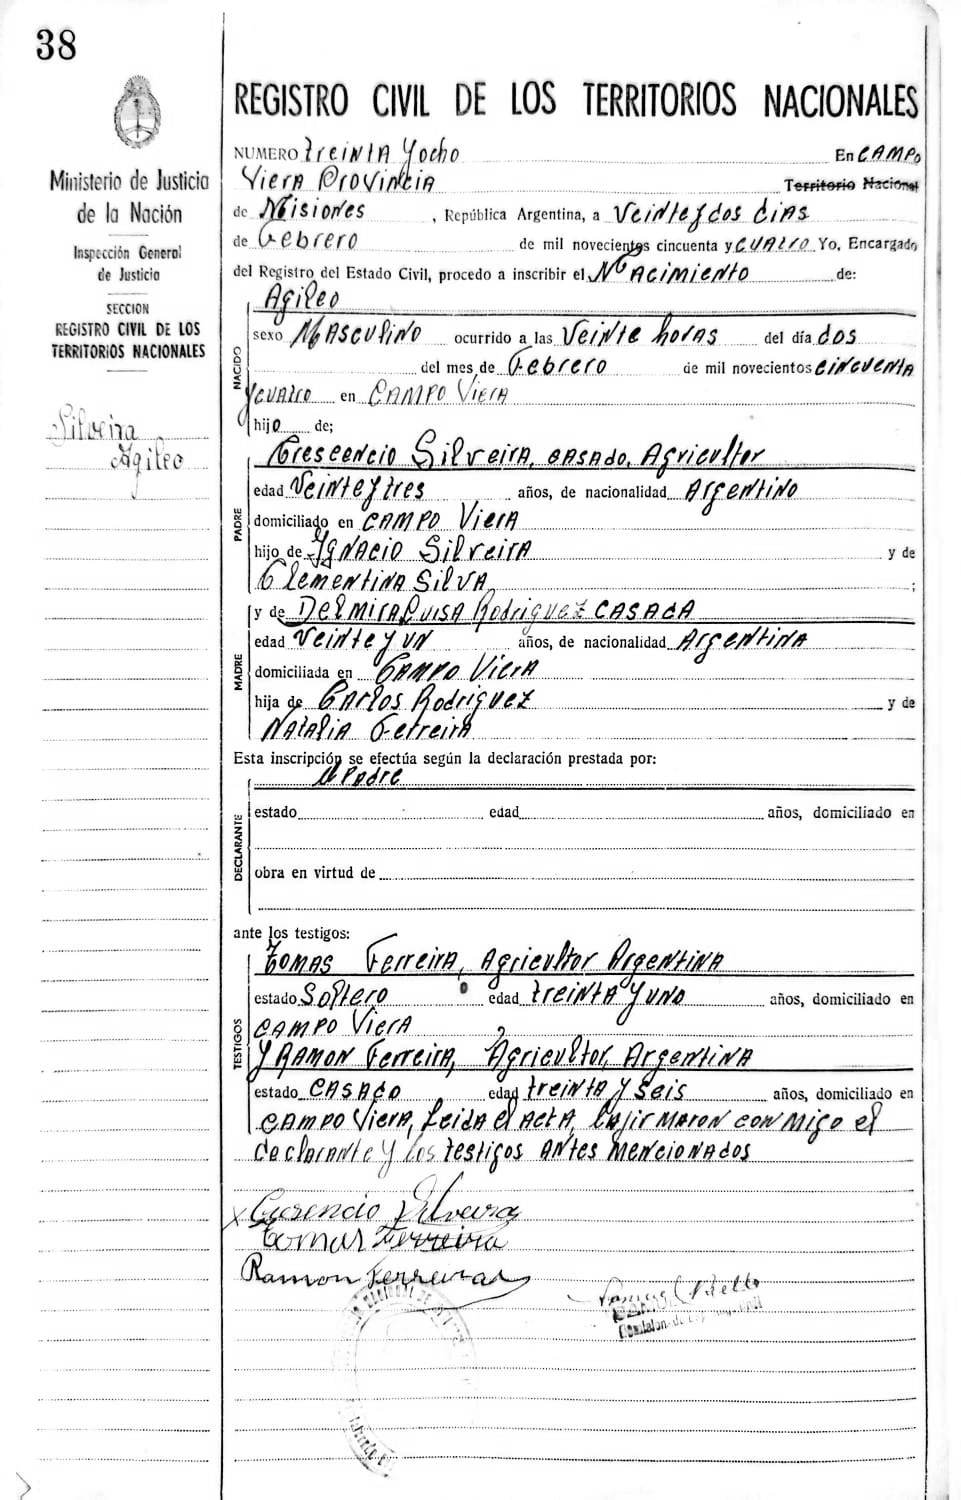 38
REGISTRO CIVIL DE LOS TERRITORIOS NACIONALES
Ministerio de Justicia
de la Nación
Inspección General
de Justicia
SECCION
REGISTRO CIVIL DE LOS
TERRITORIOS NACIONALES
Silveira
Agileo
NUMERO treinta yocho En CAMPO
Viera Provincia Territorio Nacional
de Misiones, República Argentina, a Veinteydos dias
de Febrero de mil novecientos cincuenta y cuatro Yo, Encargado
del Registro del Estado Civil, procedo a inscribir el Nacimiento de:
NACIDO
Agileo
sexo Masculino ocurrido a las Veinte horas del día dos
del mes de Febrero de mil novecientos cincuenta
ycuatro en Campo Viera
hijo de;
PADRE
Crescencio Silveira, casado, Agricultor
edad Veinteytres años, de nacionalidad Argentino
domiciliado en Campo Viera
hijo de Ygnacio Silveira y de
Clementina Silva ;
MADRE
y de Delmira Luisa Rodriguez casada
edad Veinte y un años, de nacionalidad Argentina
domiciliada en Campo Viera
hija de Carlos Rodriguez y de
Natalia Ferreira
Esta inscripción se efectúa según la declaración prestada por:
DECLARANTE
el Padre
estado edad años, domiciliado en
obra en virtud de
ante los testigos:
TESTIGOS
Tomas Ferreira, Agricultor Argentina
estado Soltero edad treinta y uno años, domiciliado en
Campo Viera
y Ramon Ferreira, Agricultor, Argentina
estado casado edad treinta y seis años, domiciliado en
Campo Viera, Leida el acta, la firmaron conmigo el
declarante y los testigos antes mencionados
Tomas Ferreira
Ramon Ferreira